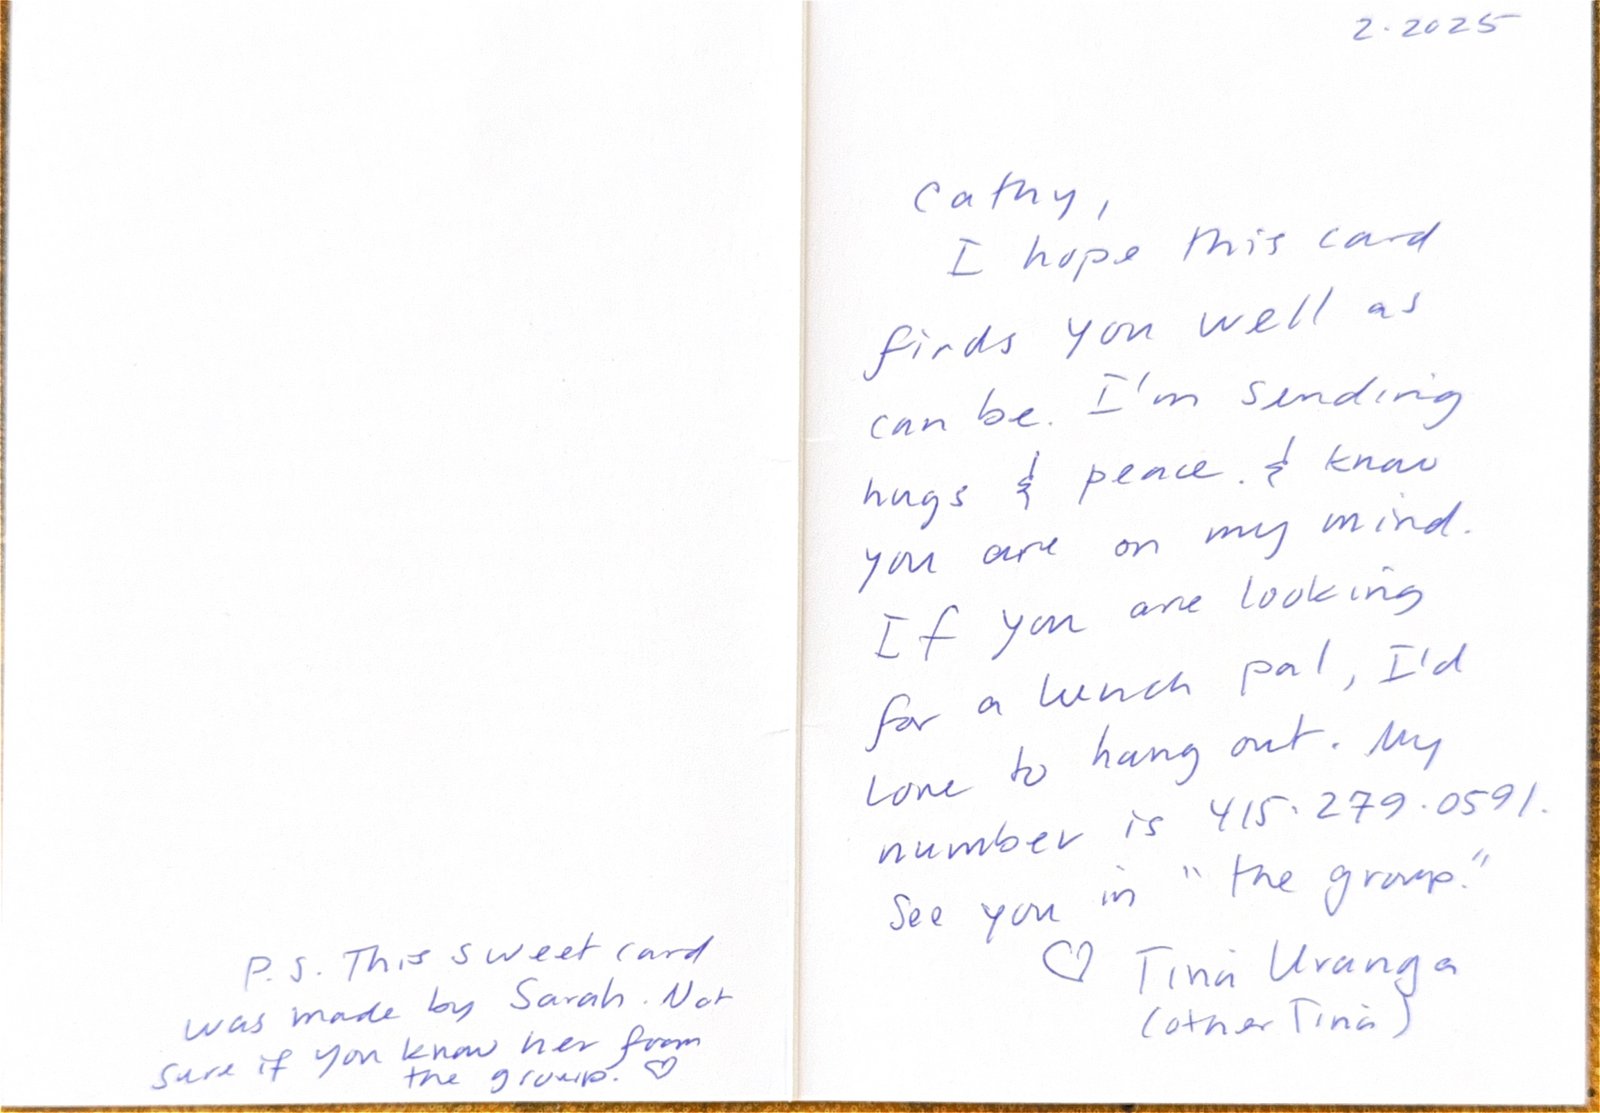 2.2025
Cathy,
I hope this card
finds you well as
can be. I'm sending
hugs & peace. & know
you are on my mind.
If you are looking
for a lunch pal, I'd
love to hang out. My
number is 415.279.0591.
See you in "the group."
♡ Tina Uranga
(other Tina)
P.S. This sweet card
was made by Sarah. Not
sure if you know her from
the group. ♡